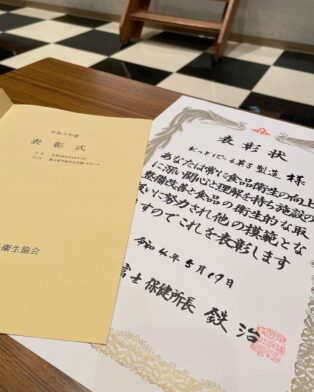 表彰式
衛生協会
表彰状
菓子製造 様
あなたは常に食品衛生の向上
に深い関心と理解を持ち施設の
整備改善と食品の衛生的な取
扱いに努力され他の模範とな
すのでこれを表彰します
令和4年5月19日
富士保健所長 鉄 治